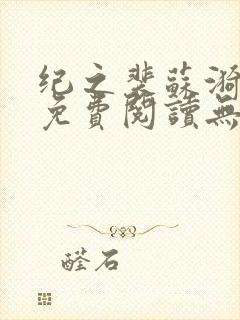 纪之裴蘇漪
免費閱讀無
醛石